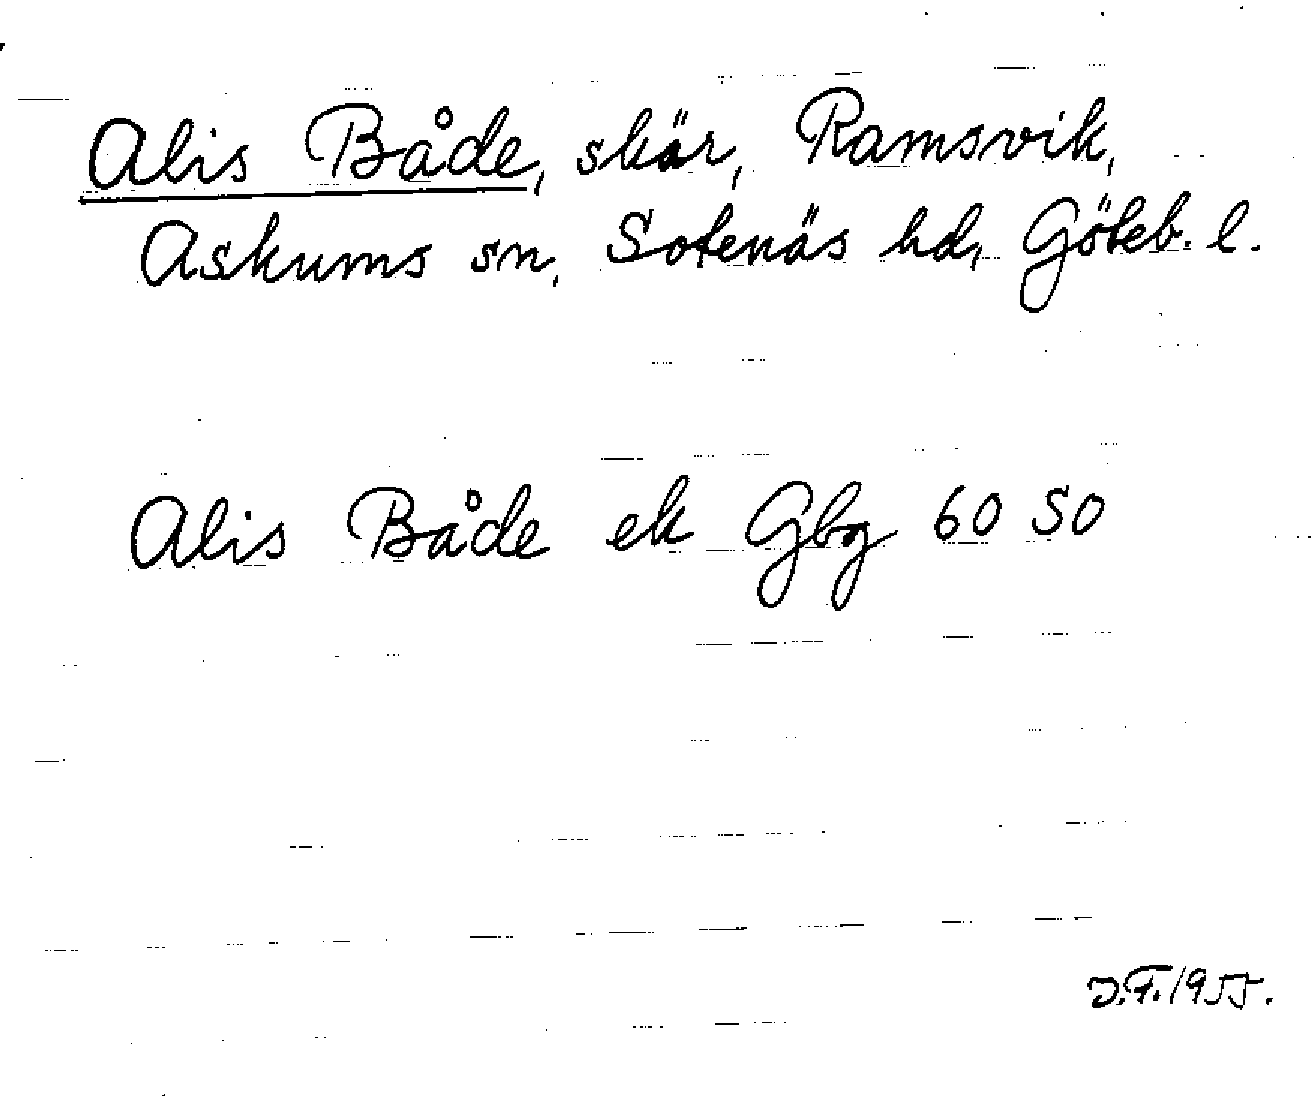 Alis Både, skär, Ramsvik,
Askums sn, Sotenäs hd, Göteb. l.
Alis Både ek Gbg 60 50
J.F. 1955.